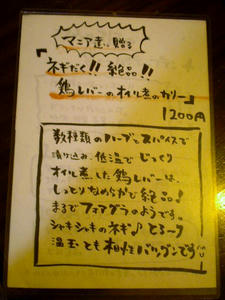 マニア達に贈る
「ネギだく!! 絶品!!
鶏レバーのオイル煮のカリー」
1200円
数種類のハーブとスパイスで
漬け込み、低温でじっくり
オイル煮した鶏レバーは、
しっとりなめらかで絶品♪
まるでフォアグラのようです。
シャキシャキのネギ♪とろ〜り
温玉とも相性バツグンです